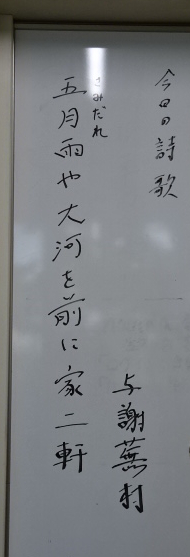 今日の詩歌
さみだれ
五月雨や大河を前に家二軒
与謝蕪村